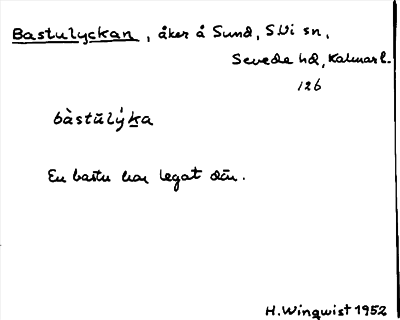 Bastulyckan, åker å Sund, S Vi sn,
Sevede hd, Kalmar l.
126
bàstŭlý́ka
En bastu har legat där.
H. Winqwist 1952